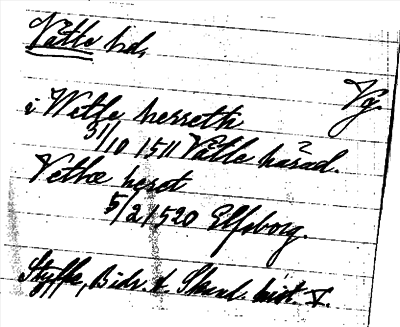 Vätle hd.
Vg.
i Wetle herreth
31/10 1511 Vätle härad.
Vethœ heret
5/2 1520 Elfsborg.
Styffe, Bidr. t. Skand. hist. V.